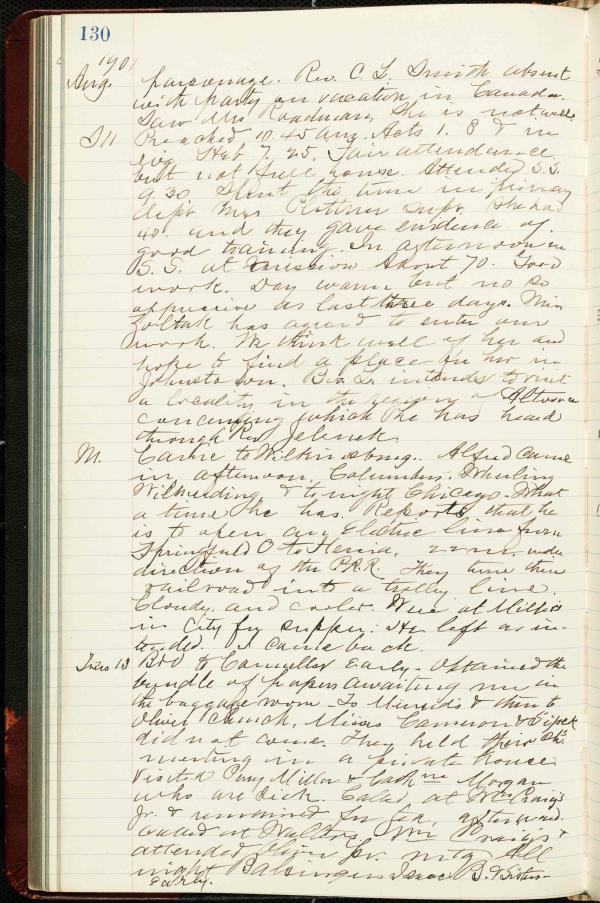 130
1901
Aug. parsonage. Rev. C. L. Smith absent
with party on vacation in Canada.
Saw Mrs Roadman, she is not well.
S 11 Preached 10.45 Aug. Acts 1. 8 & in
evg. Heb 7. 25. Fair attendance
but not full house. Attended S.S.
9.30. Spent the time in primary
dept. Mrs Supt. She had
40. and they gave evidence of
good training. In afternoon in
S. S. at Mission. About 70. Good
work. Day warm but no so
oppressive as last three days. Miss
Zoltak has agreed to enter our
work. We think well of her and
hope to find a place for her in
Johnstown. Bro. L. intends to visit
a locality in the region of Altoona
concerning which he has heard
through Rev Jelinek.
M. Came to Wilkinsburg. Alfred came
in afternoon, Columbus, Wheeling
& tonight Chicago. What
a time he has. Reports that he
is to open an Electric line from
Springfield O to Xenia, 22 m. under
direction of the P.R.R. They turn their
railroad into a trolley line.
Cloudy and cooler. Were at Millie's
in City for supper. He left as in-
tended. I came back.
Tues 13 B & O to Connellsv early. Obtained the
bundle of papers awaiting me in
the baggage room. To & then to
Olivet Church. Misses Cameron &
did not come. They held their Ch.
meeting in a private house
Visited Miller & Cath ne Morgan
who are sick. Called at Wm Craig's
Jr. & remained for tea, afterward
called at Walters, Wm Craig's &
attended Olivet pr. mtg. All
night Balsingers Isaac B. & Sisters
Early.